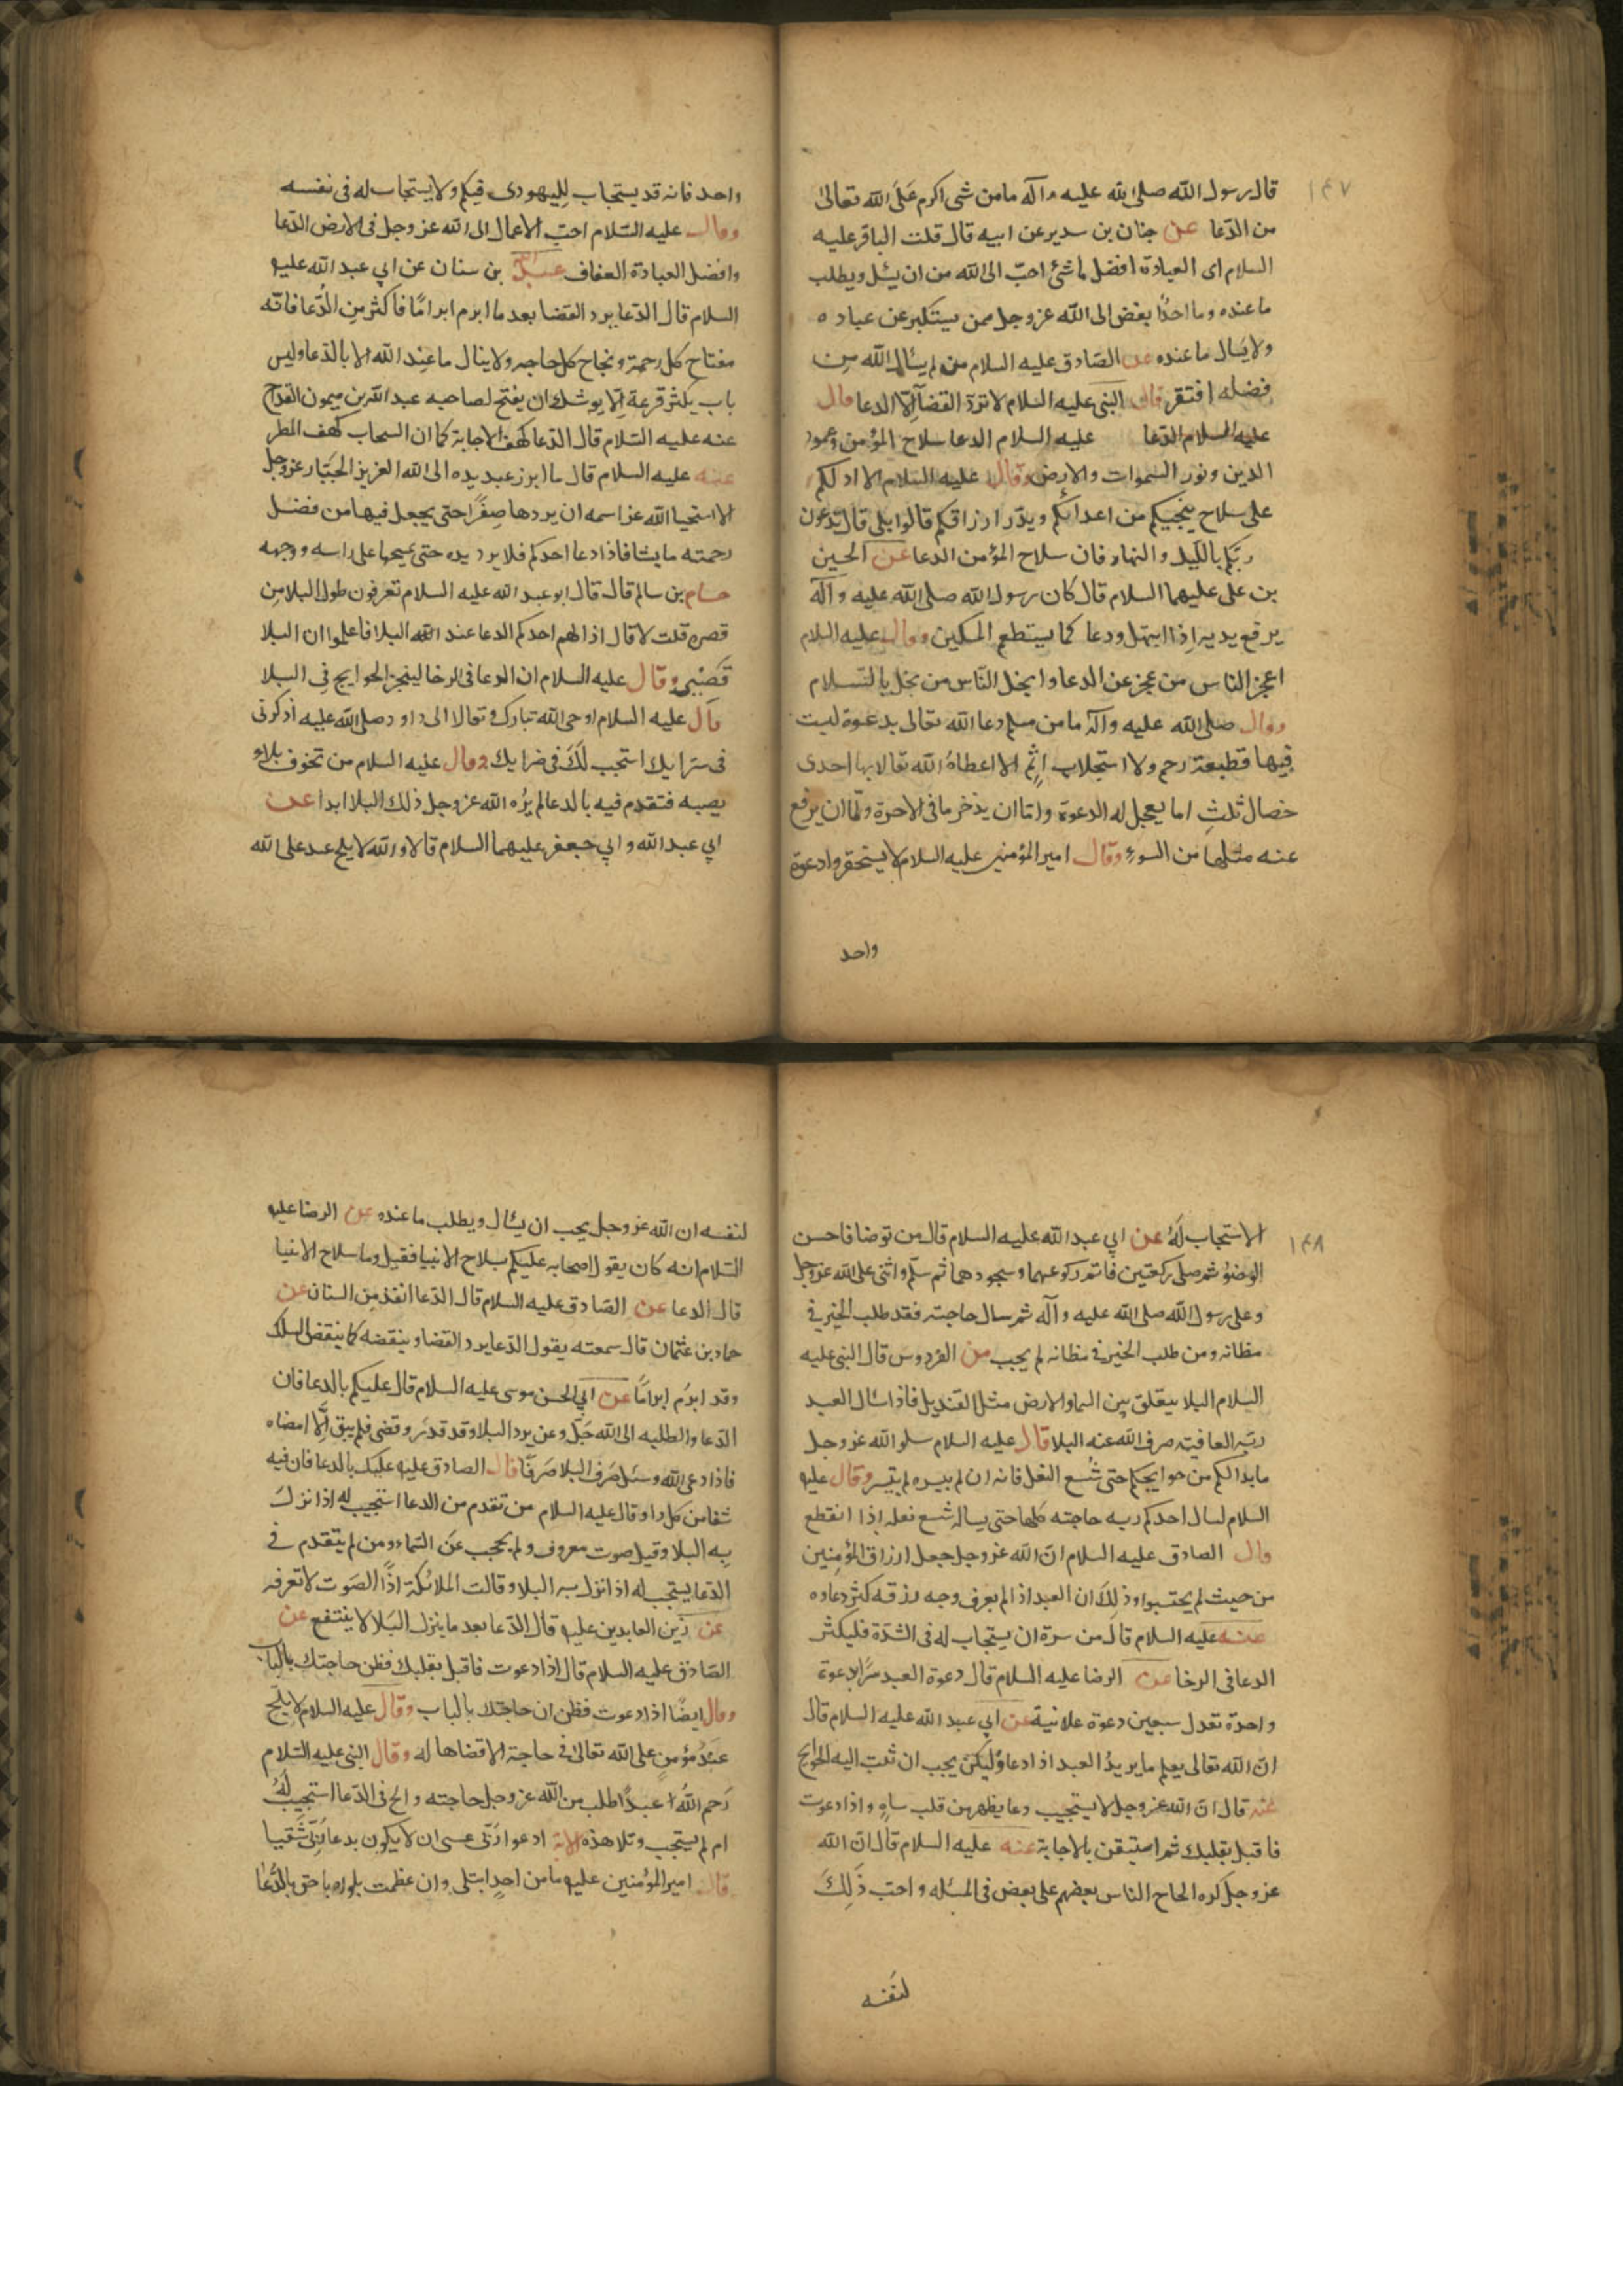 ١٤٧
قال رسول الله صلى الله عليه وآله ما من شى اكرم على الله تعالى
من الدّعا عن حنان بن سدير عن ابيه قال قلت الباقر عليه
السلام اى العبادة افضل ما شئ احبّ الى الله من ان يسئل ويطلب
ما عنده وما احدًا بغض الى الله عز وجل ممن يستكبر عن عباده
ولا يسال ما عنده عن الصّادق عليه السلام من لم يسئال الله من
فضله افتقر قال النبى عليه السلام لا تردّ القضآ الّا الدعا قال
عليه السلام الدّعا عليه السلام الدعا سلاح المؤمن وعمود
الدين ونور السموات والارض وقال عليه السّلام الا ادلكم
على سلاح ينجيكم من اعدائكم ويدّر ارزاقكم قالوا بلى قال تدعون
ربّكم بالليل والنهار فان سلاح المؤمن الدعا عن الحسين
بن على عليهما السلام قال كان رسول الله صلى الله عليه وآله
يرفع يديه اِذا ابتهل ودعا كما يستطعم المسكين وقال عليه السلام
اعجز الناس من عجز عن الدعا وابخل النّاس من بخل بالسّلام
وقال صلى الله عليه وآله ما من مسلم دعا الله تعالى بدعوة ليست
فيها قطيعة رحم ولا استجلاب اثم الا اعطاهُ الله تعالا بها احدى
خصال ثلثِ اما يعجل له الدعوة وامّا ان يدخر ما فى الاخرة وامّا ان يرفع
عنه مثلها من السوءِ وقال امير المؤمنين عليه السلام لا يستحقروا دعوة
واحد
واحد فانه قد يستجاب لليهودى فيكم ولا يستجاب له فى نفسه
وقال عليه السّلام احبّ الاعمال الى الله عز وجل فى الارض الدّعا
وافضل العبادة العفاف عبد الله بن سنان عن ابي عبد الله عليه
السلام قال الدّعا يرد القضا بعد ما ابرم ابرامًا فاكثر مِن الدُّعا فانّه
مفتاح كل رحمة ونجاح كل حاجه ولا ينال ما عِند الله الا بالدّعا وليس
باب يكثر قرعة اِلّا يوشك ان يفتح لصاحبه عبد الله بن ميمون القداح
عنه عليه السّلام قال الدّعا كهف الاجابة كما ان السحاب كهف المطر
عنه عليه السلام قال ما ابرز عبد يده الى الله العزيز الجبّار عز وجل
الا استحيا الله عز اسمه ان يردها صِفرًا حتى يجعل فيها من فضل
رحمته ما يشا فاذا دعا احدكم فلا يرد يده حتى يمسحها على راسه ووجهه
هشام بن سالم قال قال ابو عبد الله عليه السلام تعرفون طول البلا من
قصره قلت لا قال اذا الهم احدكم الدعا عند الله البلا فاعلموا ان البلا
قَصير وقال عليه السلام ان الدعا فى الرخا لينجز الحوايج فى البلا
قال عليه السلام اوحى الله تبارك وتعالا الى داود صلى الله عليه اذكرنى
فى سرّايك استجب لَكَ فى ضرّايك وقال عليه السلام من تخوف بلاءً
يصبه فتقدم فيه بالدعا لم يُره الله عز وجل ذلك البلا ابدا عن
ابي عبد الله وابي جعفر عليهما السلام قالا والله لا يلح عبد على الله
١٤٨
الا استجاب لَهُ عن ابي عبد الله عليه السلام قال من توضا فاحسن
الوضؤ ثم صلى ركعتين فاتم ركوعهما وسجودهما ثم سلّم واثنى على الله عز وجل
وعلى رسول الله صلى الله عليه وآله ثم سال حاجته فقد طلب الخير في
مظانه ومن طلب الخير فى مظانه لم يجب من الفردوس قال النبى عليه
السلام البلا يتعلق بين السما والارض مثل القنديل فاذا سئال العبد
ربّه العافية صرف الله عنه البلا قال عليه السلام سلو الله عز وجل
ما بدا لكم من حوايجكم حتى شسع النعل فانه ان لم ييسره لم يتيسر وقال عليه
السلام ليسال احدكم ربه حاجته كلها حتى يساله شسع نعله اِذا انقطع
وقال الصادق عليه السلام انّ الله عز وجل جعل ارزاق المؤمنين
من حيث لم يحتسبوا وذلِكَ ان العبد اذا لم يعرف وجه رزقه كثر دعاوه
عنه عليه السلام قال من سرة ان يستجاب له فى الشدّة فليكثر
الدعا فى الرخا عن الرضا عليه السلام قال دعوة العبد سرًا بدعوة
واحدة تعدل سبعين دعوة علانية عن ابي عبد الله عليه السلام قال
انّ الله تعالى يعلم ما يريدُ العبد اذا دعا ولكن يحب ان تبث اليه الحوائج
عنه قال انّ الله عز وجل لا يستجيب دعا يظهر من قلب ساهٍ واذا دعوت
فاقبل بقلبك ثم استيقن بالاجابة عنه عليه السلام قال انّ الله
عز وجل كره الحاح الناس بعضهم على بعض فى المسئله واحب ذَلِكَ
لنفسه
لنفسه ان الله عز وجل يحب ان يسئال ويطلب ما عنده عن الرضا عليه
السّلام انه كان يقول لاصحابه عليكم بسلاح الانبيا فقيل وما سلاح الانبيا
قال الدعا عن الصّادق عليه السلام قال الدّعا انفذ مِن السنان عن
حماد بن عثمان قال سمعته يقول الدّعا يرد القضا وينقضه كما ينقض السلك
وقد ابرُم ابرامًا عن ابي الحسن موسى عليه السلام قال عليكم بالدعا فان
الدّعا والطلبه الى الله جَلّ وعز يرد البلا وقد قدّر وقضى فلم يبق اِلّا امضاه
فاذا دعى الله وسئل صَرف البلا صَرفًا قال الصادق عليه عليك بالدعا فان فيه
شفا من كل دا وقال عليه السلام من تقدم من الدعا استجيب له اذا نزلَ
بِه البلا وقيل صوت معروف ولم يحجب عَن السّماء ومن لم يتقدم فى
الدّعا يستجب له اذا نزل به البلا وقالت الملائكة اِذًا الصَوت لا نعرفه
عن زين العابدين عليه قال الدّعا بعد ما ينزل البَلا لا ينتفع عن
الصّادق عليه السلام قال اذا دعوت فاقبل بقلبك فظن حاجتك بالباب
وقال ايضًا اذا دعوت فظن ان حاجتك بالباب وقال عليه السلام لا يلح
عَبدُ مؤمنٍ على الله تعالى فى حاجة الا قضاها له وقال النبى عليه السّلام
رَحِم اللهُ عبدًا طلب من الله عز وجل حاجته والح فى الدّعا استجيب لَهُ
ام لم يستجب وتلا هذه الآية ادعوا ربّى عسى ان لا يكون بدعا ربّى شقيا
قال امير المؤمنين عليه ما من احدٍ ابتلى وان عظمت بلواه باحق بالدُّعا